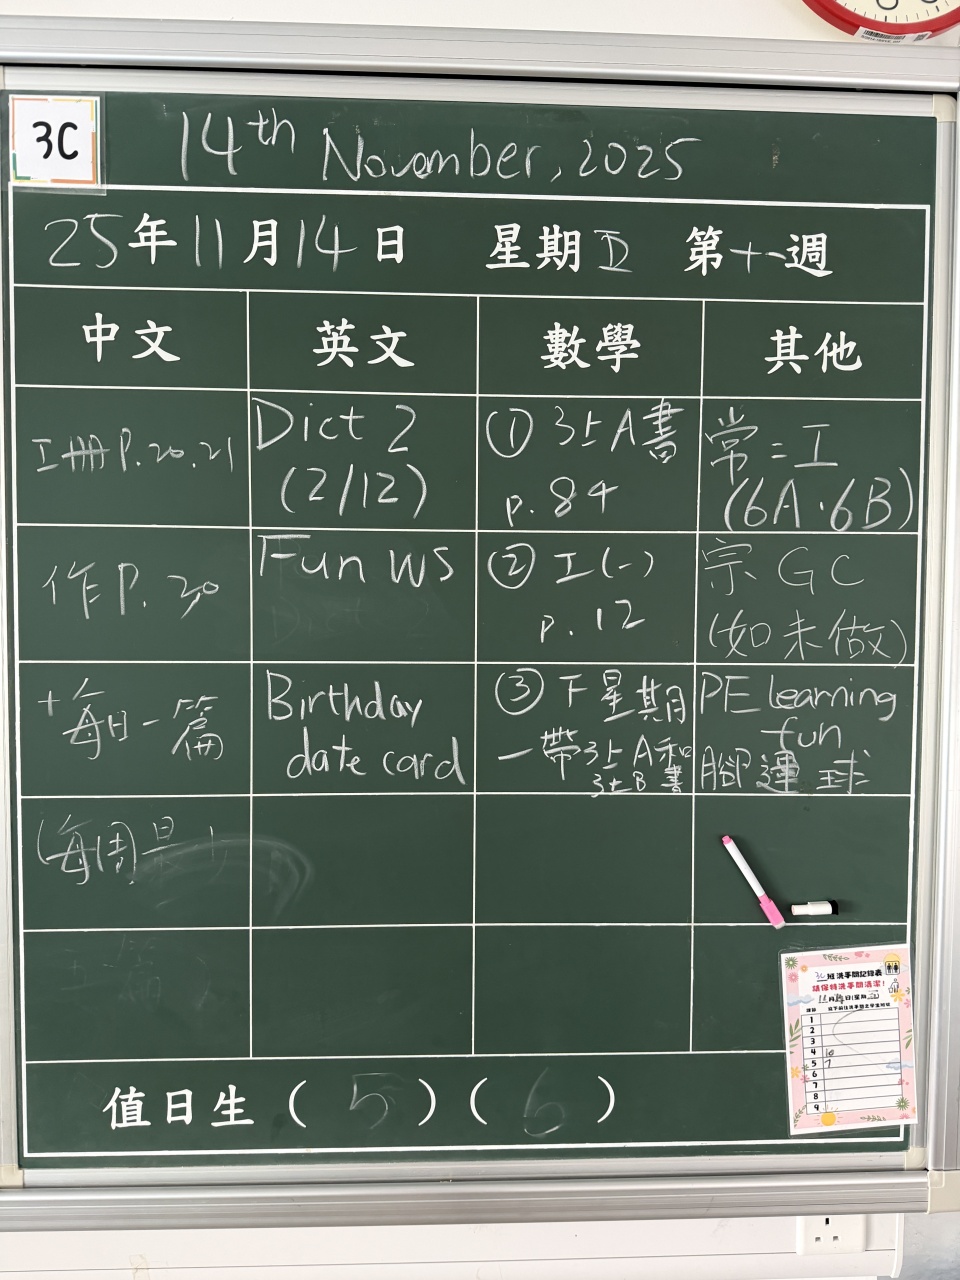 3C
14th November, 2025
25年11月14日 星期五 第十一週
中文 英文 數學 其他
工冊P.20.21
Dict 2
(2/12)
① 3上A書
p.84
常=工
(6A.6B)
作P.20
Fun WS
② 工(一)
p.12
宗 GC
(如未做)
+每日一篇
Birthday
date card
③ 下星期
一帶3上A和
3上B書
PE learning
fun
腳運球
(每周
值日生 ( 5 ) ( 6 )
3C班洗手間記錄表
請保持洗手間清潔!
11月14日(星期五)
1
2
3
4 10
5 7
6
7
8
9